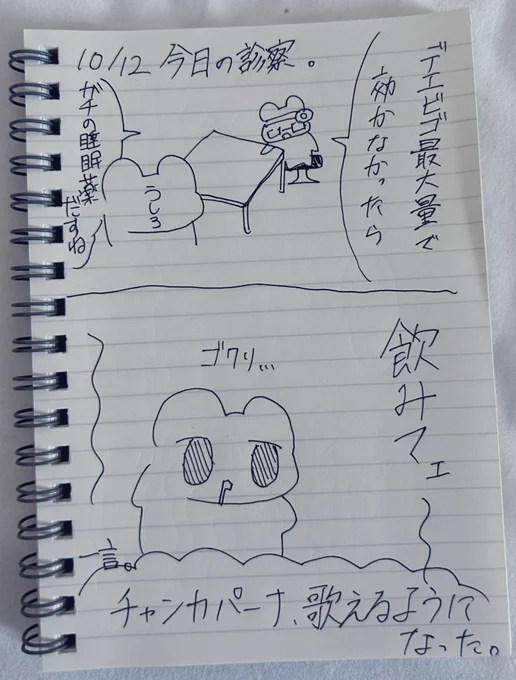 10/12 今日の診察。
デエビゴ最大量で
効かなかったら
ガチの睡眠薬
だすね
うしろ
飲みてェ
ゴクリ…
一言。
チャンカパーナ、歌えるように
なった。